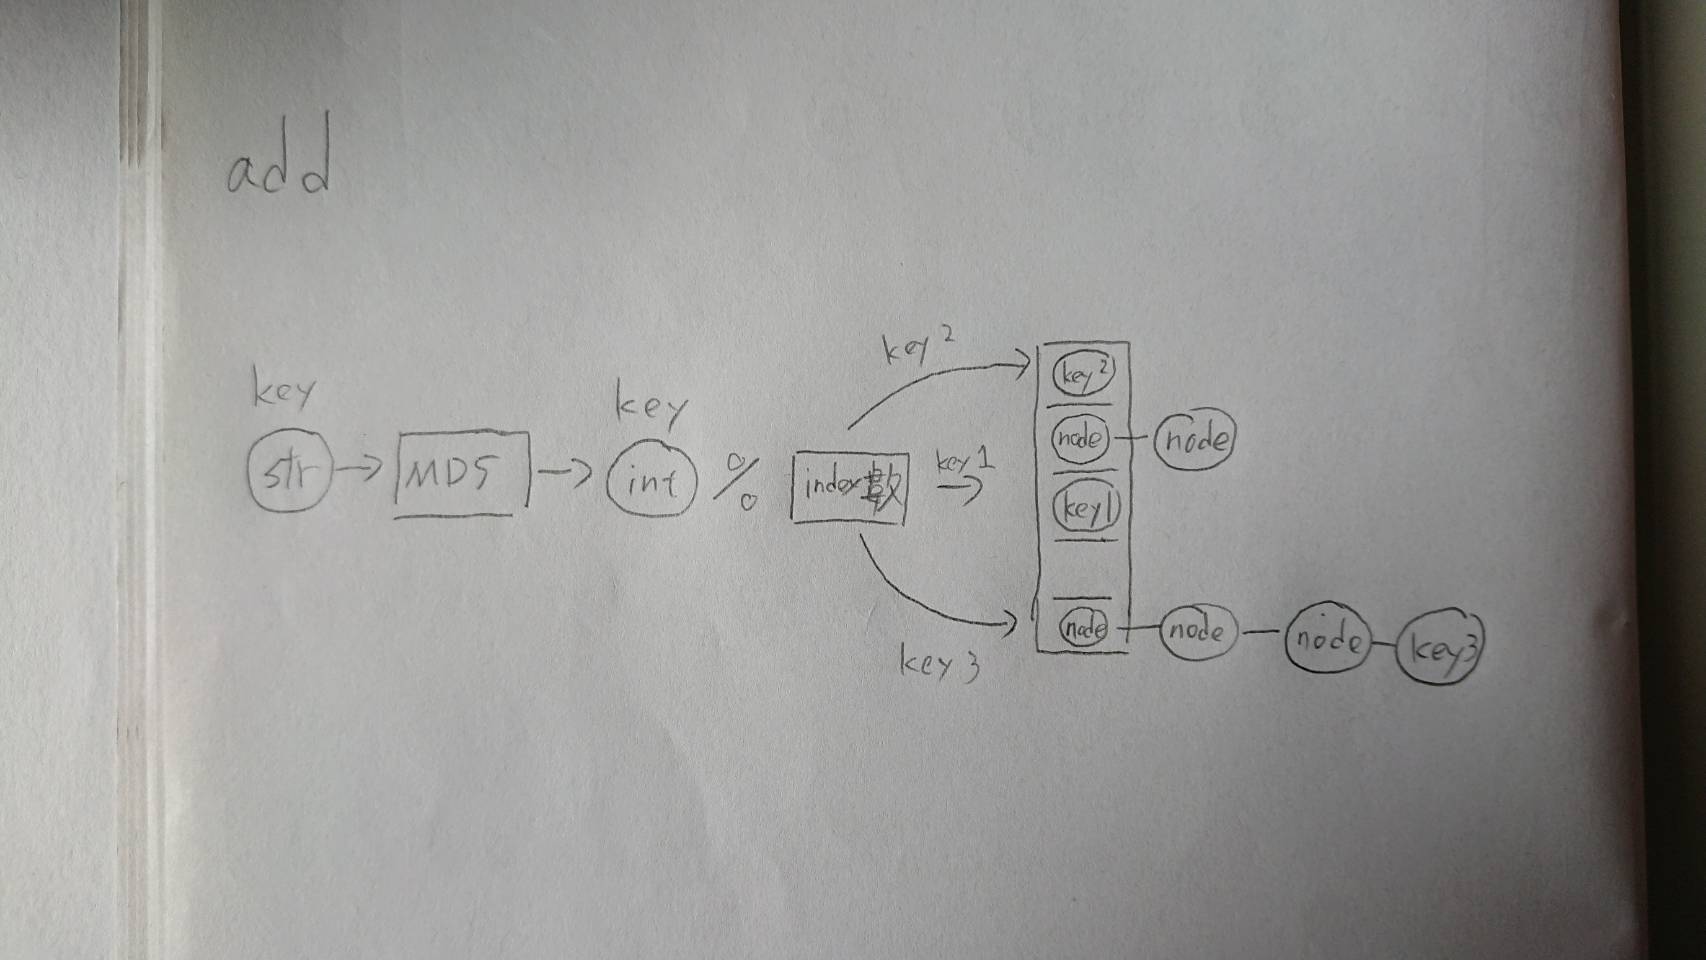 add
key
str
MD5
key
int
%
index數
key2
key1
key3
key2
node
node
key1
node
node
node
key3